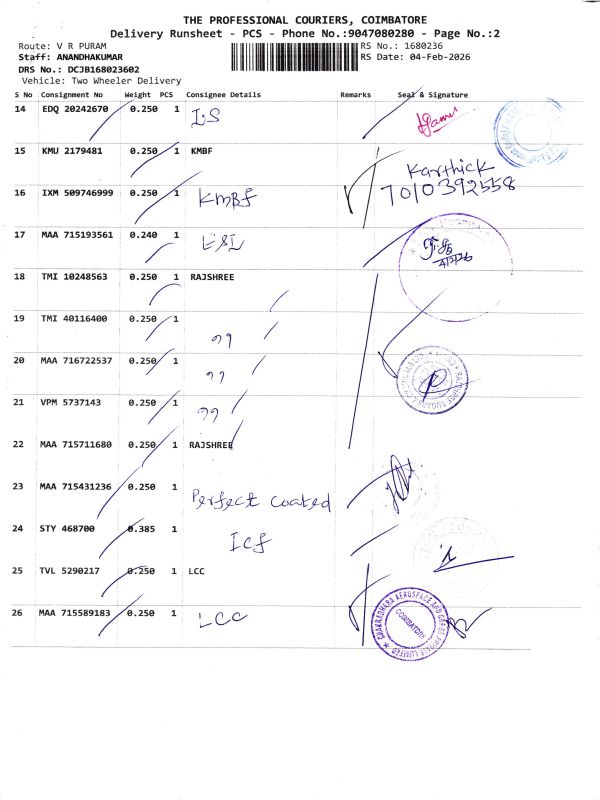 THE PROFESSIONAL COURIERS, COIMBATORE
Delivery Runsheet - PCS - Phone No.:9047080280 - Page No.:2
Route: V R PURAM
RS No.: 1680236
Staff: ANANDHAKUMAR
RS Date: 04-Feb-2026
DRS No.: DCJB168023602
Vehicle: Two Wheeler Delivery
S No Consignment No Weight PCS Consignee Details Remarks Seal & Signature
14 EDQ 20242670 0.250 1 IS
15 KMU 2179481 0.250 1 KMBF
Karthick
16 IXM 509746999 0.250 1 KMBF 7010392558
17 MAA 715193561 0.240 1 ESI
4/2/26
18 TMI 10248563 0.250 1 RAJSHREE
19 TMI 40116400 0.250 1 "
20 MAA 716722537 0.250 1 "
21 VPM 5737143 0.250 1 "
22 MAA 715711680 0.250 1 RAJSHREE
23 MAA 715431236 0.250 1 Perfect Coated
24 STY 468700 0.385 1 Icf
25 TVL 5290217 0.250 1 LCC
26 MAA 715589183 0.250 1 LCC
COIMBATORE